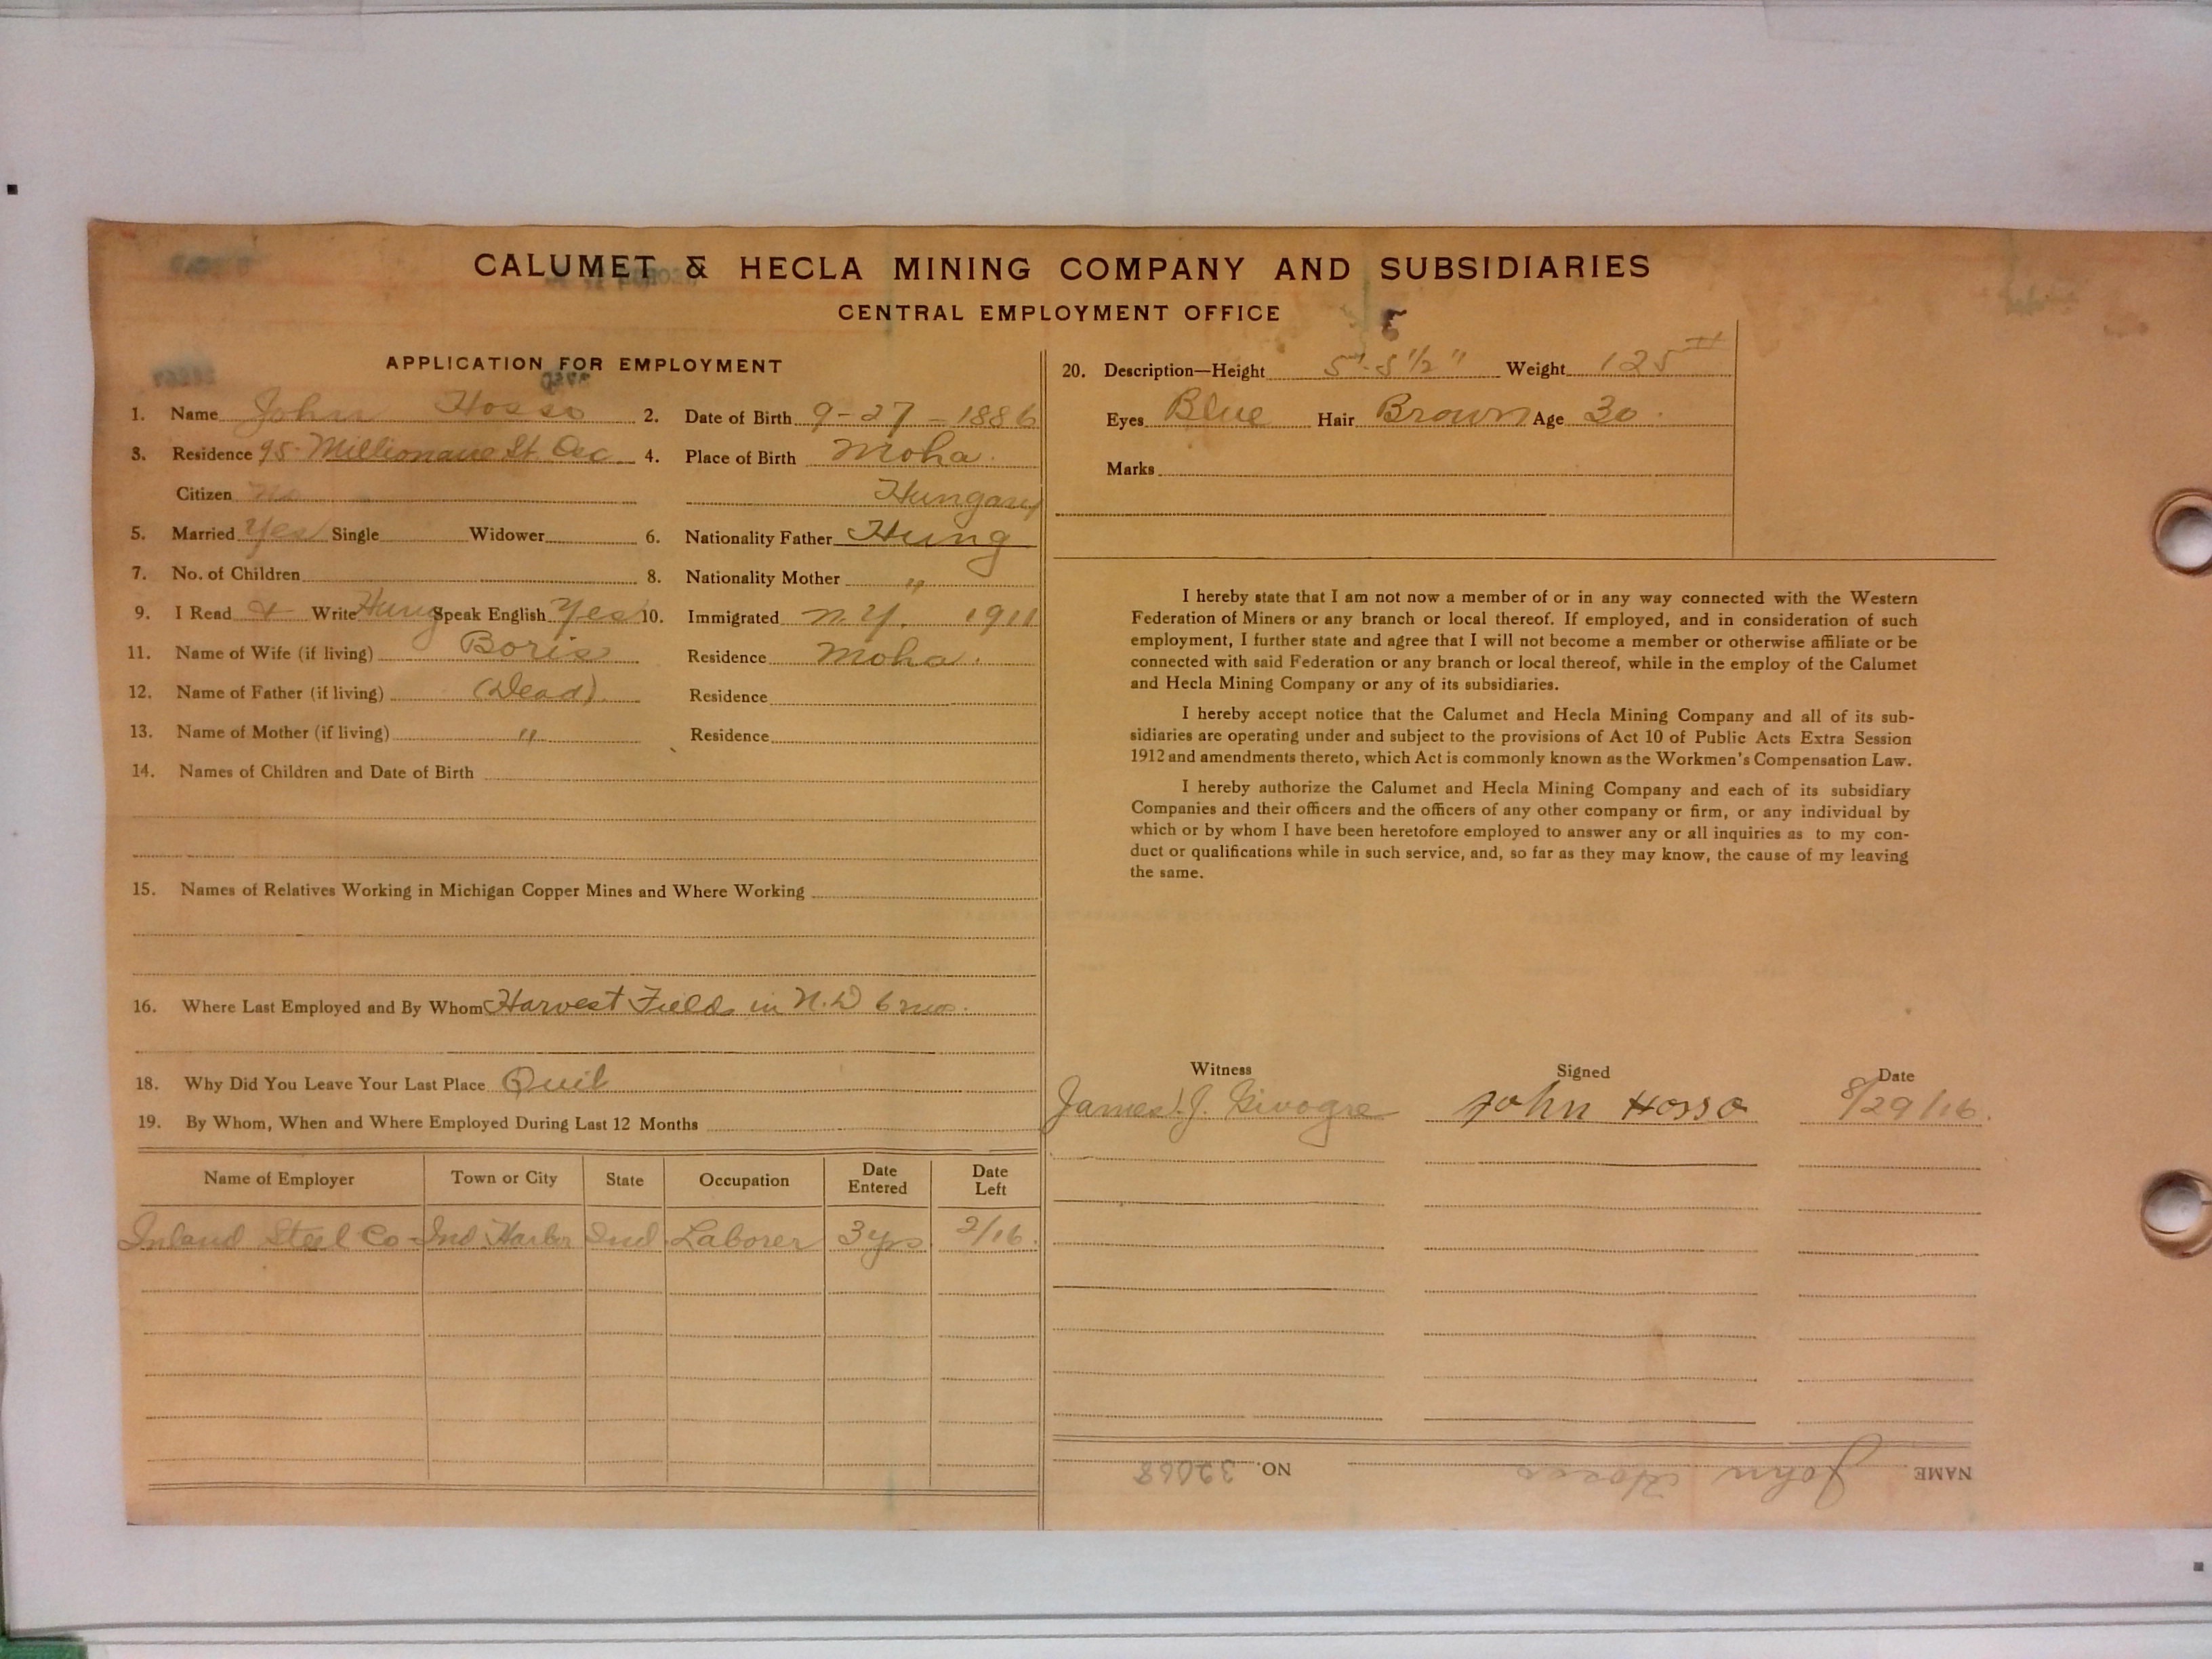 CALUMET & HECLA MINING COMPANY AND SUBSIDIARIES
CENTRAL EMPLOYMENT OFFICE
APPLICATION FOR EMPLOYMENT
1. Name John Hosso 2. Date of Birth 9-27-1886
3. Residence 95 Millionaire St. Osc. 4. Place of Birth Moha.
Citizen No Hungary
5. Married Yes Single Widower 6. Nationality Father Hung
7. No. of Children 8. Nationality Mother "
9. I Read & Write Hung Speak English Yes 10. Immigrated N.Y. 1911
11. Name of Wife (if living) Boris Residence Moha.
12. Name of Father (if living) (Dead) Residence
13. Name of Mother (if living) " Residence
14. Names of Children and Date of Birth
15. Names of Relatives Working in Michigan Copper Mines and Where Working
16. Where Last Employed and By Whom Harvest Fields in N.D 6 mos.
18. Why Did You Leave Your Last Place Quit
19. By Whom, When and Where Employed During Last 12 Months
Name of Employer Town or City State Occupation Date Entered Date Left
Inland Steel Co- Ind. Harbor Ind. Laborer 3 yrs 2/16.
20. Description—Height 5'-5 1/2" Weight 125 #
Eyes Blue Hair Brown Age 30.
Marks
I hereby state that I am not now a member of or in any way connected with the Western
Federation of Miners or any branch or local thereof. If employed, and in consideration of such
employment, I further state and agree that I will not become a member or otherwise affiliate or be
connected with said Federation or any branch or local thereof, while in the employ of the Calumet
and Hecla Mining Company or any of its subsidiaries.
I hereby accept notice that the Calumet and Hecla Mining Company and all of its sub-
sidiaries are operating under and subject to the provisions of Act 10 of Public Acts Extra Session
1912 and amendments thereto, which Act is commonly known as the Workmen's Compensation Law.
I hereby authorize the Calumet and Hecla Mining Company and each of its subsidiary
Companies and their officers and the officers of any other company or firm, or any individual by
which or by whom I have been heretofore employed to answer any or all inquiries as to my con-
duct or qualifications while in such service, and, so far as they may know, the cause of my leaving
the same.
Witness Signed Date
James J. John Hosso 8/29/16.
NAME John Hosso NO. 32068